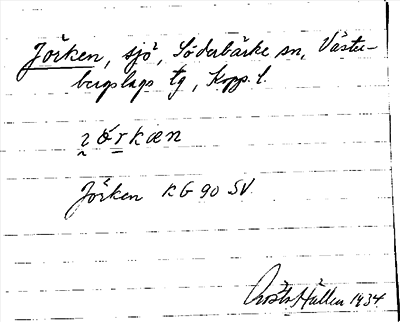 Jörken, sjö, Söderbärke sn, Väster-
bergslags tg, Kopp. l.
Jörken KG 90 SV
Hällen 1934